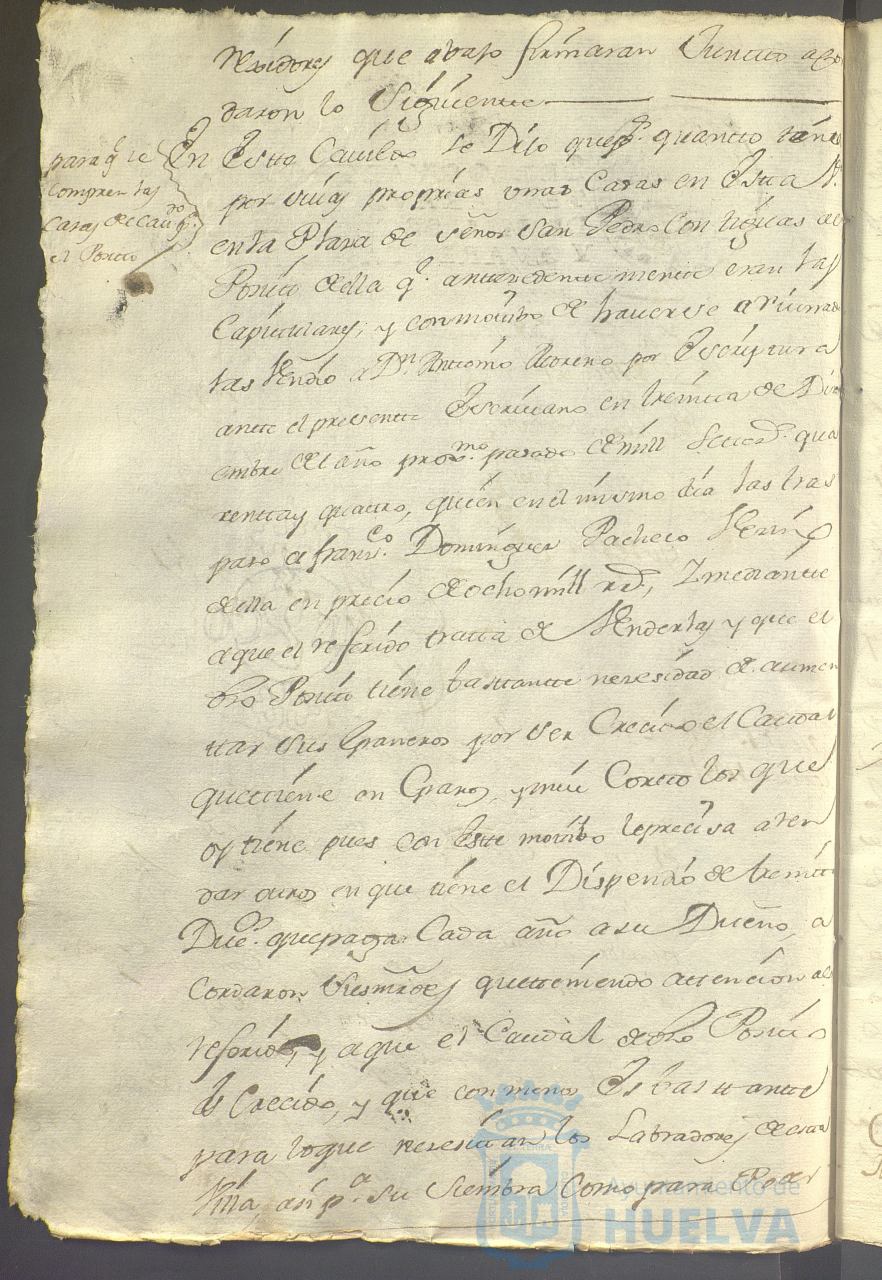 rexidores que abaxo firmaran Juntto acor
daron lo Siguiente
para q.e se
compren las
casas de Cau.do p.a
el Posito
En Estte Cavildo se Dixo que p.r quantto tiene
por suias proprias unas Casas en Esta V.a
en la Plaza de señor San Pedro Conttiguas al
Posito de ella q.e anttezedentte mentte eran las
Capitulares, y con motibo de haverse arruinado
las Vendio a D.n Anttonio Moreno por Escriptura
antte el presentte Escribano en treintta de Diz
iembre del año prox.mo pasado de mill Settez.s qua
rentta y quattro, quien en el mismo dia las tras
paso a fran.co Dominguez Pacheco Vezino
de ella en precio de ocho mill r.s, Y mediantte
a que el referido tratta de Venderlas y que el
dho Posito tiene basttantte nezesidad de aumen
ttar sus Graneros por ser Crecido el Caudal
que ttiene en Granos, y mui Cortto los que
oy tiene pues con Estte motibo le precisa arren
dar ottros en que tiene el Dispendio de treintta
Duc.s que paga Cada año a su Dueño, a
Cordaron Sus mrdes que tteniendo attencion a lo
referido, y a que el Caudal de dho Posito
es Crecido, y que con menos Es basttantte
para lo que nezesitan los Labradores de esta
Villa, asi p.a su siembra Como para
Ayuntamiento de
HUELVA